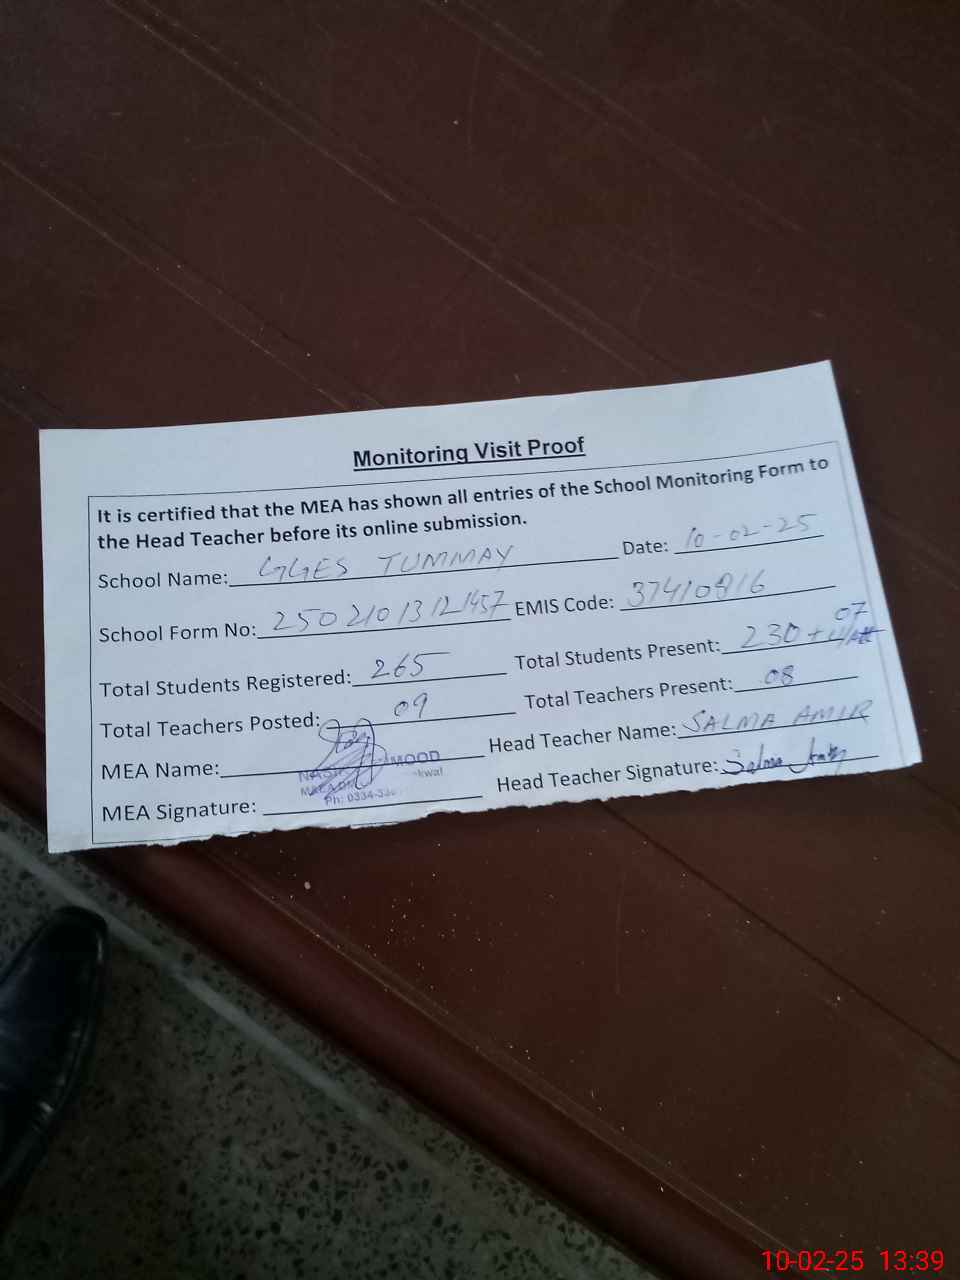 Monitoring Visit Proof
It is certified that the MEA has shown all entries of the School Monitoring Form to
the Head Teacher before its online submission.
School Name: GGES TUMMAY Date: 10-02-25
School Form No: 25021013121457 EMIS Code: 37410816
Total Students Registered: 265 Total Students Present: 230 + 07
Total Teachers Posted: 09 Total Teachers Present: 08
MEA Name: MOOD Head Teacher Name: SALMA AMIR
MEA Signature: Ph: 0334-33 Head Teacher Signature: Salma Amir
10-02-25 13:39